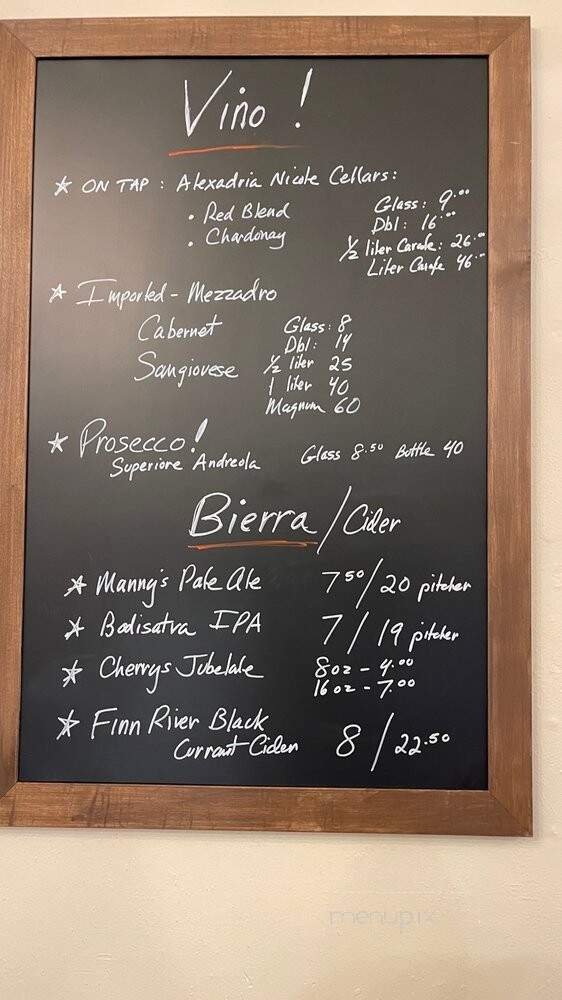 Vino!
★ ON TAP : Alexadria Nicole Cellars:
• Red Blend
• Chardonay
Glass: 9.00
Dbl: 16.00
1/2 liter Carafe: 26.00
Liter Carafe 46.00
★ Imported - Mezzadro
Cabernet
Sangiovese
Glass: 8
Dbl: 14
1/2 liter 25
1 liter 40
Magnum 60
★ Prosecco!
Superiore Andreola
Glass 8.50 Bottle 40
Bierra/Cider
★ Manny's Pale Ale 7 50/20 pitcher
★ Bodisatva IPA 7/19 pitcher
★ Cherrys Jubelale 8oz - 4.00
16oz - 7.00
★ Finn River Black
Currant Cider 8/22.50
menupix